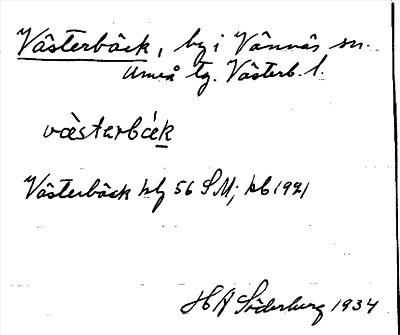 Västerbäck, by i Vännäs sn.
Umeå tg. Västerb. l.
västərbäk
Västerbäck hfl 56 SM; kb 1921
H A Söderberg 1934